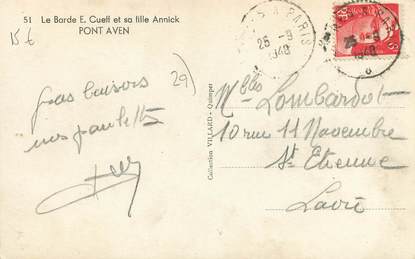 51 Le Barde E. Gueff et sa fille Annick
PONT AVEN
15 €
29
gros baisers
nos
Collection VILLARD - Quimper
A PARIS
25 -9
1948
Mlles Lombardot
10 rue 11 Novembre
St Etienne
Loire